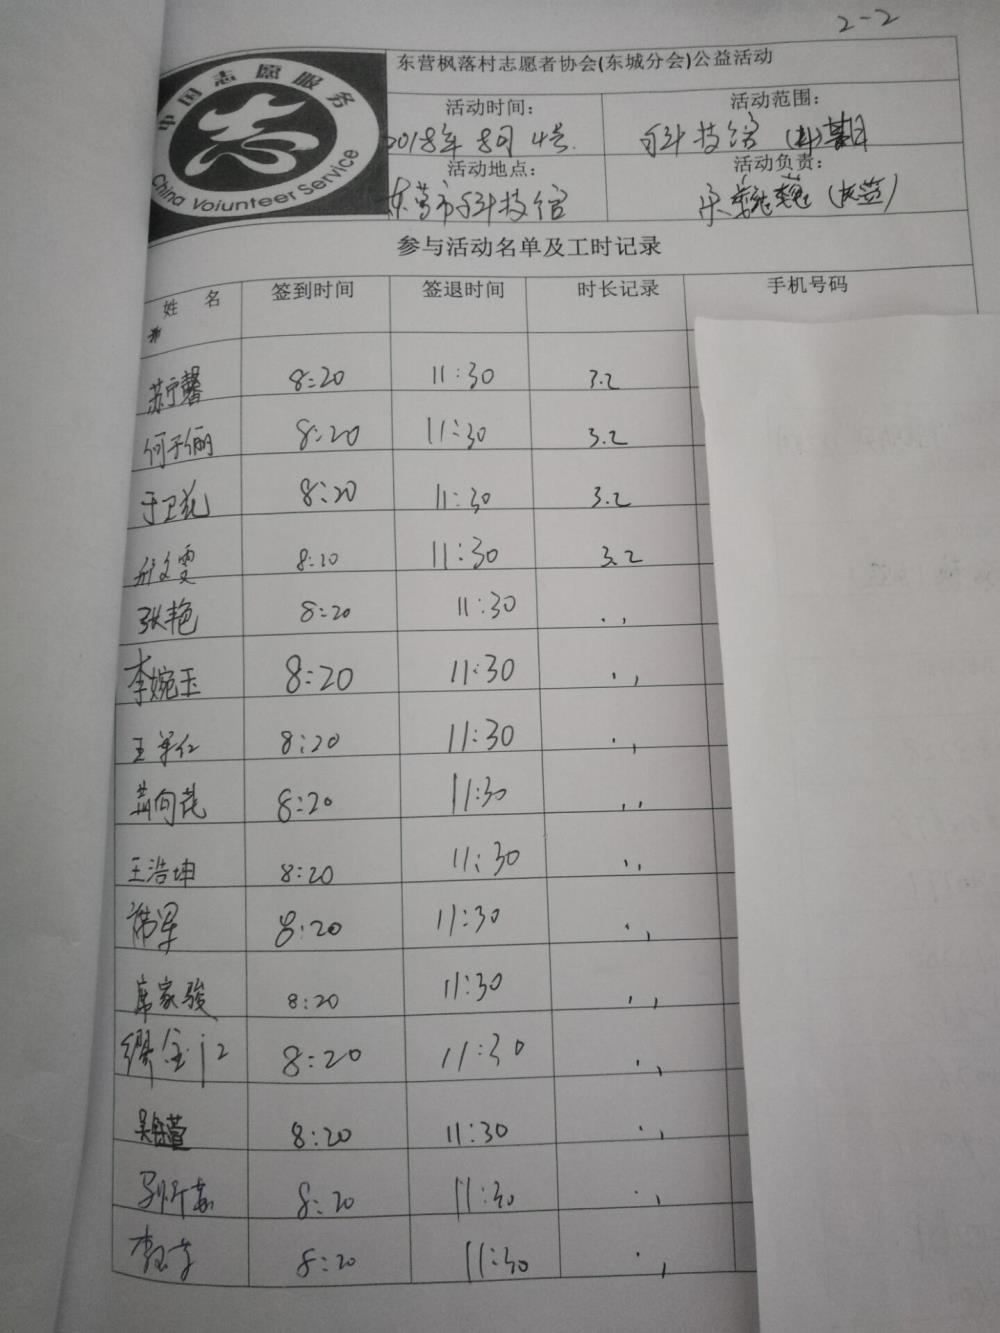 2-2
中国志愿服务
China Voiunteer Service
东营枫落村志愿者协会(东城分会)公益活动
活动时间： 活动范围：
2018年 8月 4号. 科技馆
活动地点： 活动负责：
东营市科技馆 宋巍巍
参与活动名单及工时记录
姓 名 签到时间 签退时间 时长记录 手机号码
苏宁馨 8:20 11:30 3.2
何子俪 8:20 11:30 3.2
于卫花 8:20 11:30 3.2
文雯 8:20 11:30 3.2
张艳 8:20 11:30 ､､
李婉玉 8:20 11:30 ､､
王 8:20 11:30 ､､
向花 8:20 11:30 ､､
王浩坤 8:20 11:30 ､､
8:20 11:30 ､､
席家骏 8:20 11:30 ､､
缪 8:20 11:30 ､､
吴 萱 8:20 11:30 ､､
8:20 11:30 ､､
李 8:20 11:30 ､､